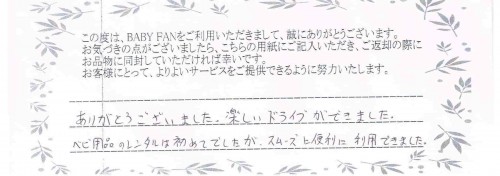 この度は、BABY FANをご利用いただきまして、誠にありがとうございます。
お気づきの点がございましたら、こちらの用紙にご記入いただき、ご返却の際に
お品物に同封していただければ幸いです。
お客様にとって、よりよいサービスをご提供できるように努力いたします。
ありがとうございました。楽しいドライブができました。
ベビ用品のレンタルは初めてでしたが、スムーズに便利に利用できました。